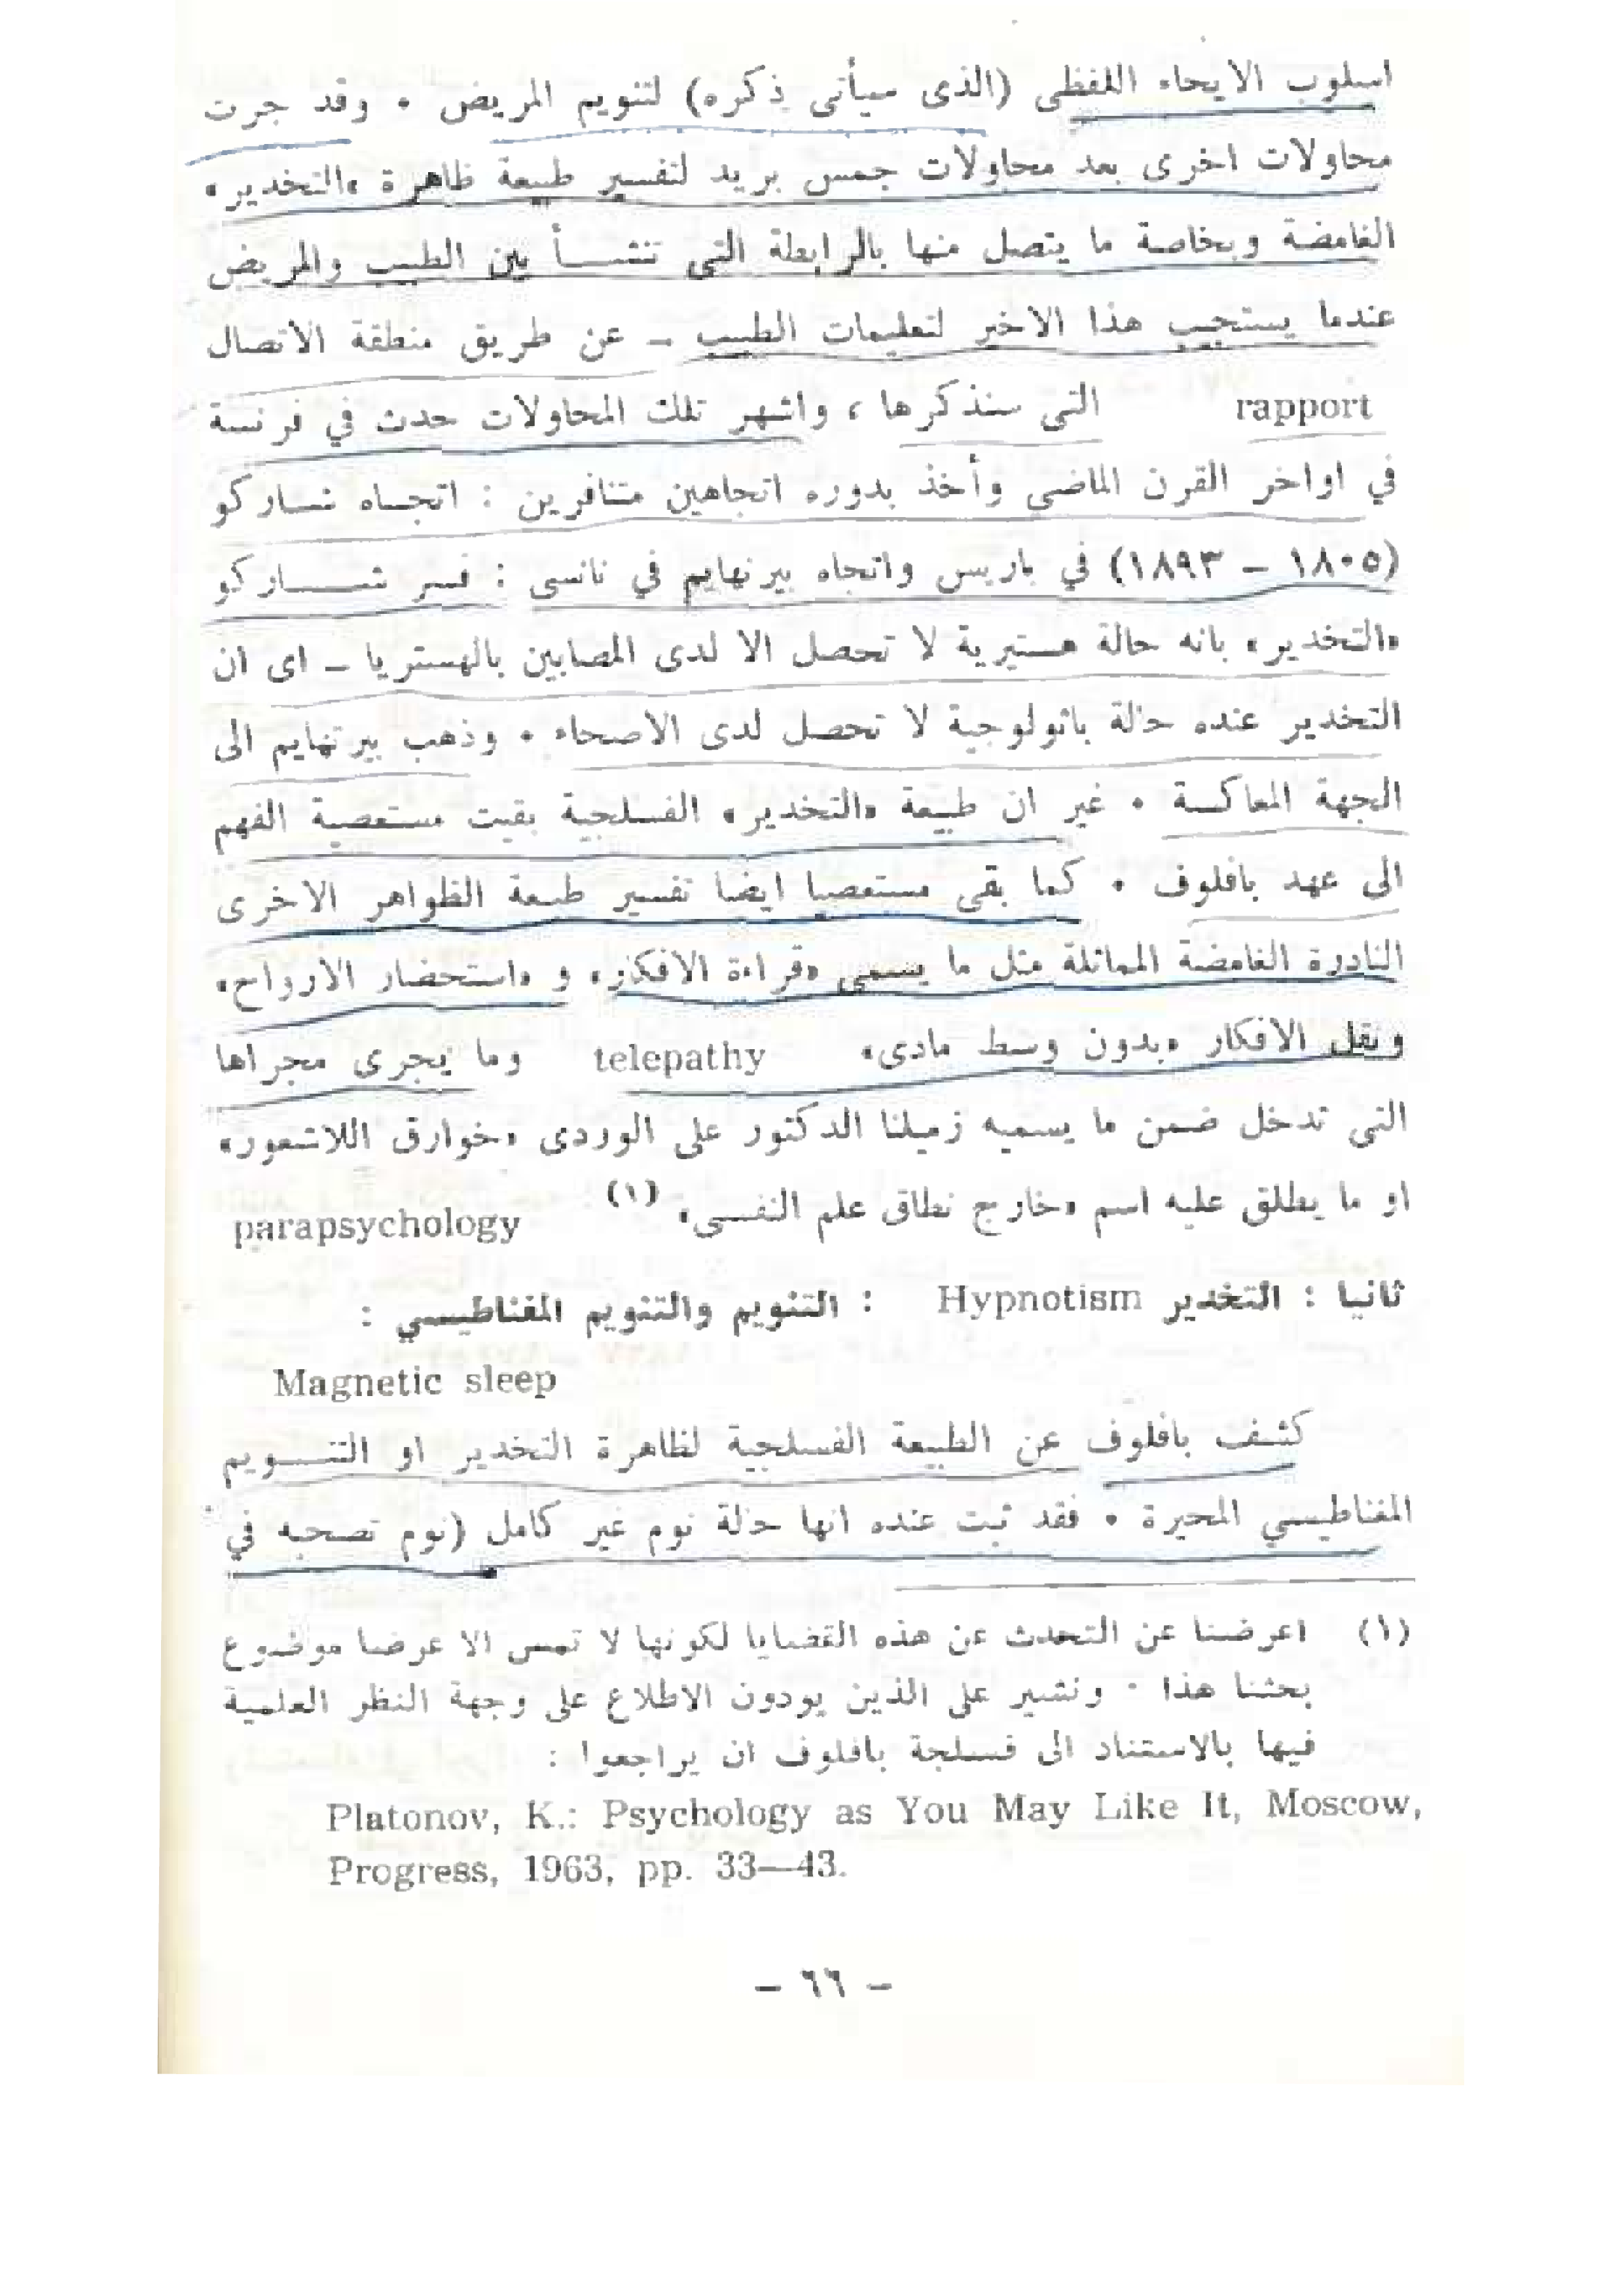 اسلوب الايحاء اللفظى (الذى سيأتى ذكره) لتنويم المريض • وقد جرت
محاولات اخرى بعد محاولات جمس بريد لتفسير طبيعة ظاهرة «التخدير»
الغامضة وبخاصة ما يتصل منها بالرابطة التى تنشـــأ بين الطبيب والمريض
عندما يستجيب هذا الاخير لتعليمات الطبيب – عن طريق منطقة الاتصال
rapport التى سنذكرها ، واشهر تلك المحاولات حدث في فرنسة
في اواخر القرن الماضي وأخذ بدوره اتجاهين متنافرين : اتجـاه شـاركو
(١٨٠٥ – ١٨٩٣) في باريس واتجاه بيرنهايم في نانسى : فسر شـــــاركو
«التخدير» بانه حالة هستيرية لا تحصل الا لدى المصابين بالهستريا – اى ان
التخدير عنده حالة باثولوجية لا تحصل لدى الاصحاء • وذهب بيرنهايم الى
الجهة المعاكسة • غير ان طبيعة «التخدير» الفسلجية بقيت مستعصية الفهم
الى عهد بافلوف • كما بقى مستعصيا ايضا تفسير طبيعة الظواهر الاخرى
النادرة الغامضة المماثلة مثل ما يسمى «قراءة الافكار» و «استحضار الارواح»
ونقل الافكار «بدون وسط مادى» telepathy وما يجرى مجراها
التى تدخل ضمن ما يسميه زميلنا الدكتور على الوردى «خوارق اللاشعور»
او ما يطلق عليه اسم «خارج نطاق علم النفسى» (١) parapsychology
ثانيا : التخدير Hypnotism : التنويم والتنويم المغناطيسي :
Magnetic sleep
كشف بافلوف عن الطبيعة الفسلجية لظاهرة التخدير او التنـــويم
المغناطيسي المحيرة • فقد ثبت عنده انها حالة نوم غير كامل (نوم تصحبه في
(١) اعرضنا عن التحدث عن هذه القضايا لكونها لا تمس الا عرضا موضوع
بحثنا هذا - ونشير على الذين يودون الاطلاع على وجهة النظر العلمية
فيها بالاستناد الى فسلجة بافلوف ان يراجعوا :
Platonov, K.: Psychology as You May Like It, Moscow,
Progress, 1963, pp. 33—43.
– ٦٦ –